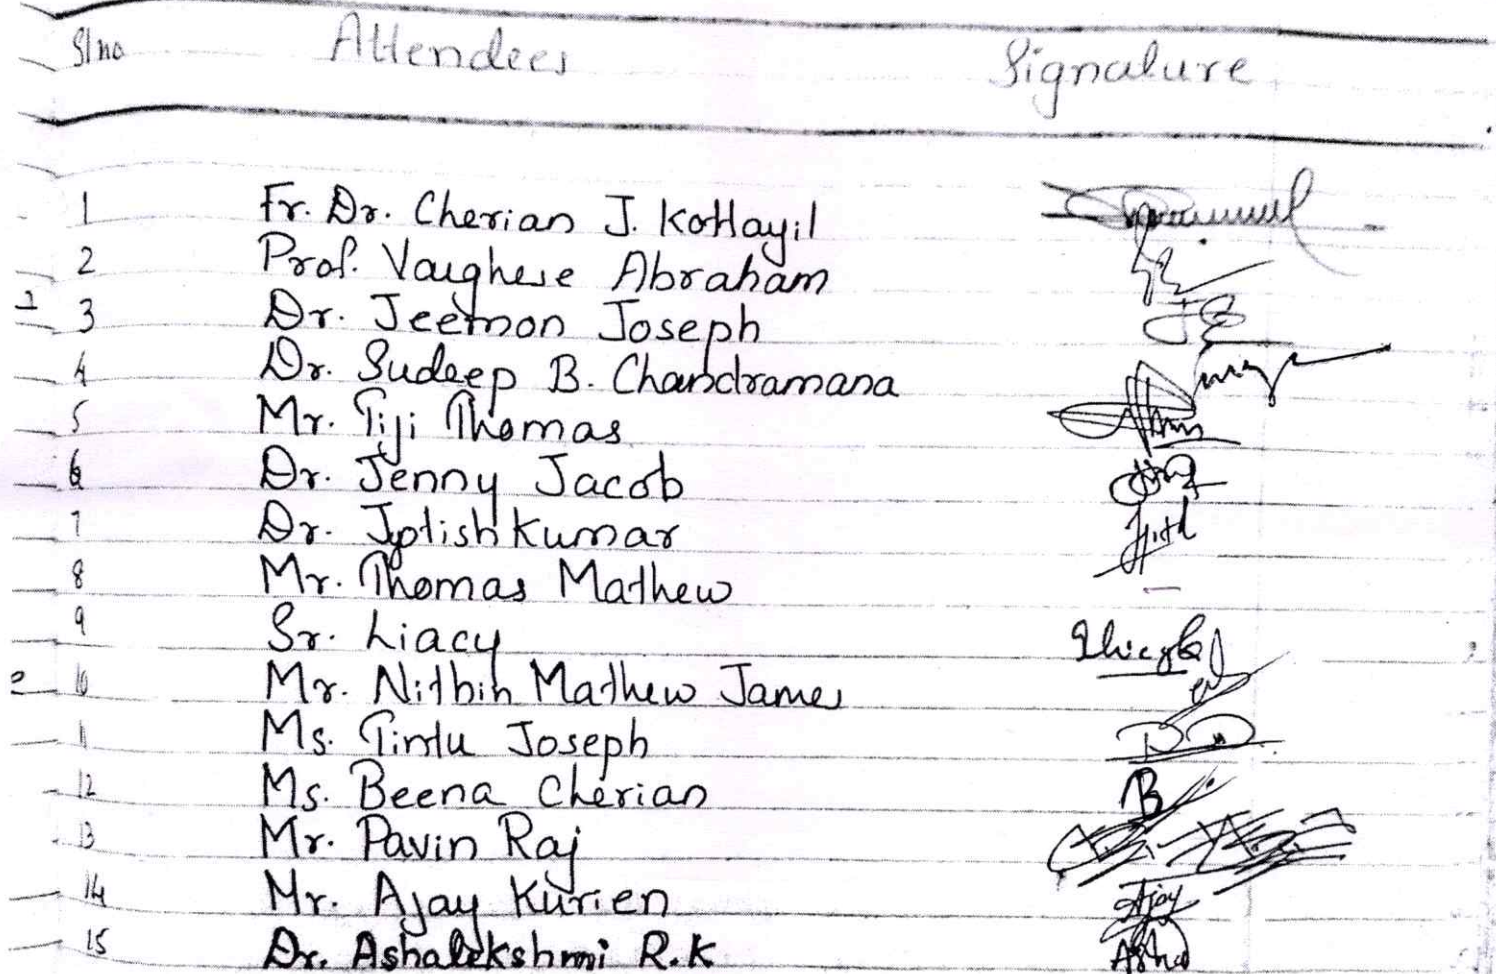 Sl no Attendees Signature
1 Fr. Dr. Cherian J. Kottayil
2 Prof. Varghese Abraham
3 Dr. Jeemon Joseph
4 Dr. Sudeep B. Chandramana
5 Mr. Tiji Thomas
6 Dr. Jenny Jacob
7 Dr. Jyotish Kumar
8 Mr. Thomas Mathew –
9 Sr. Liacy
10 Mr. Nithin Mathew James
11 Ms. Tintu Joseph
12 Ms. Beena Cherian B
13 Mr. Pavin Raj
14 Mr. Ajay Kurien Ajay
15 Dr. Ashalekshmi R.K Asha